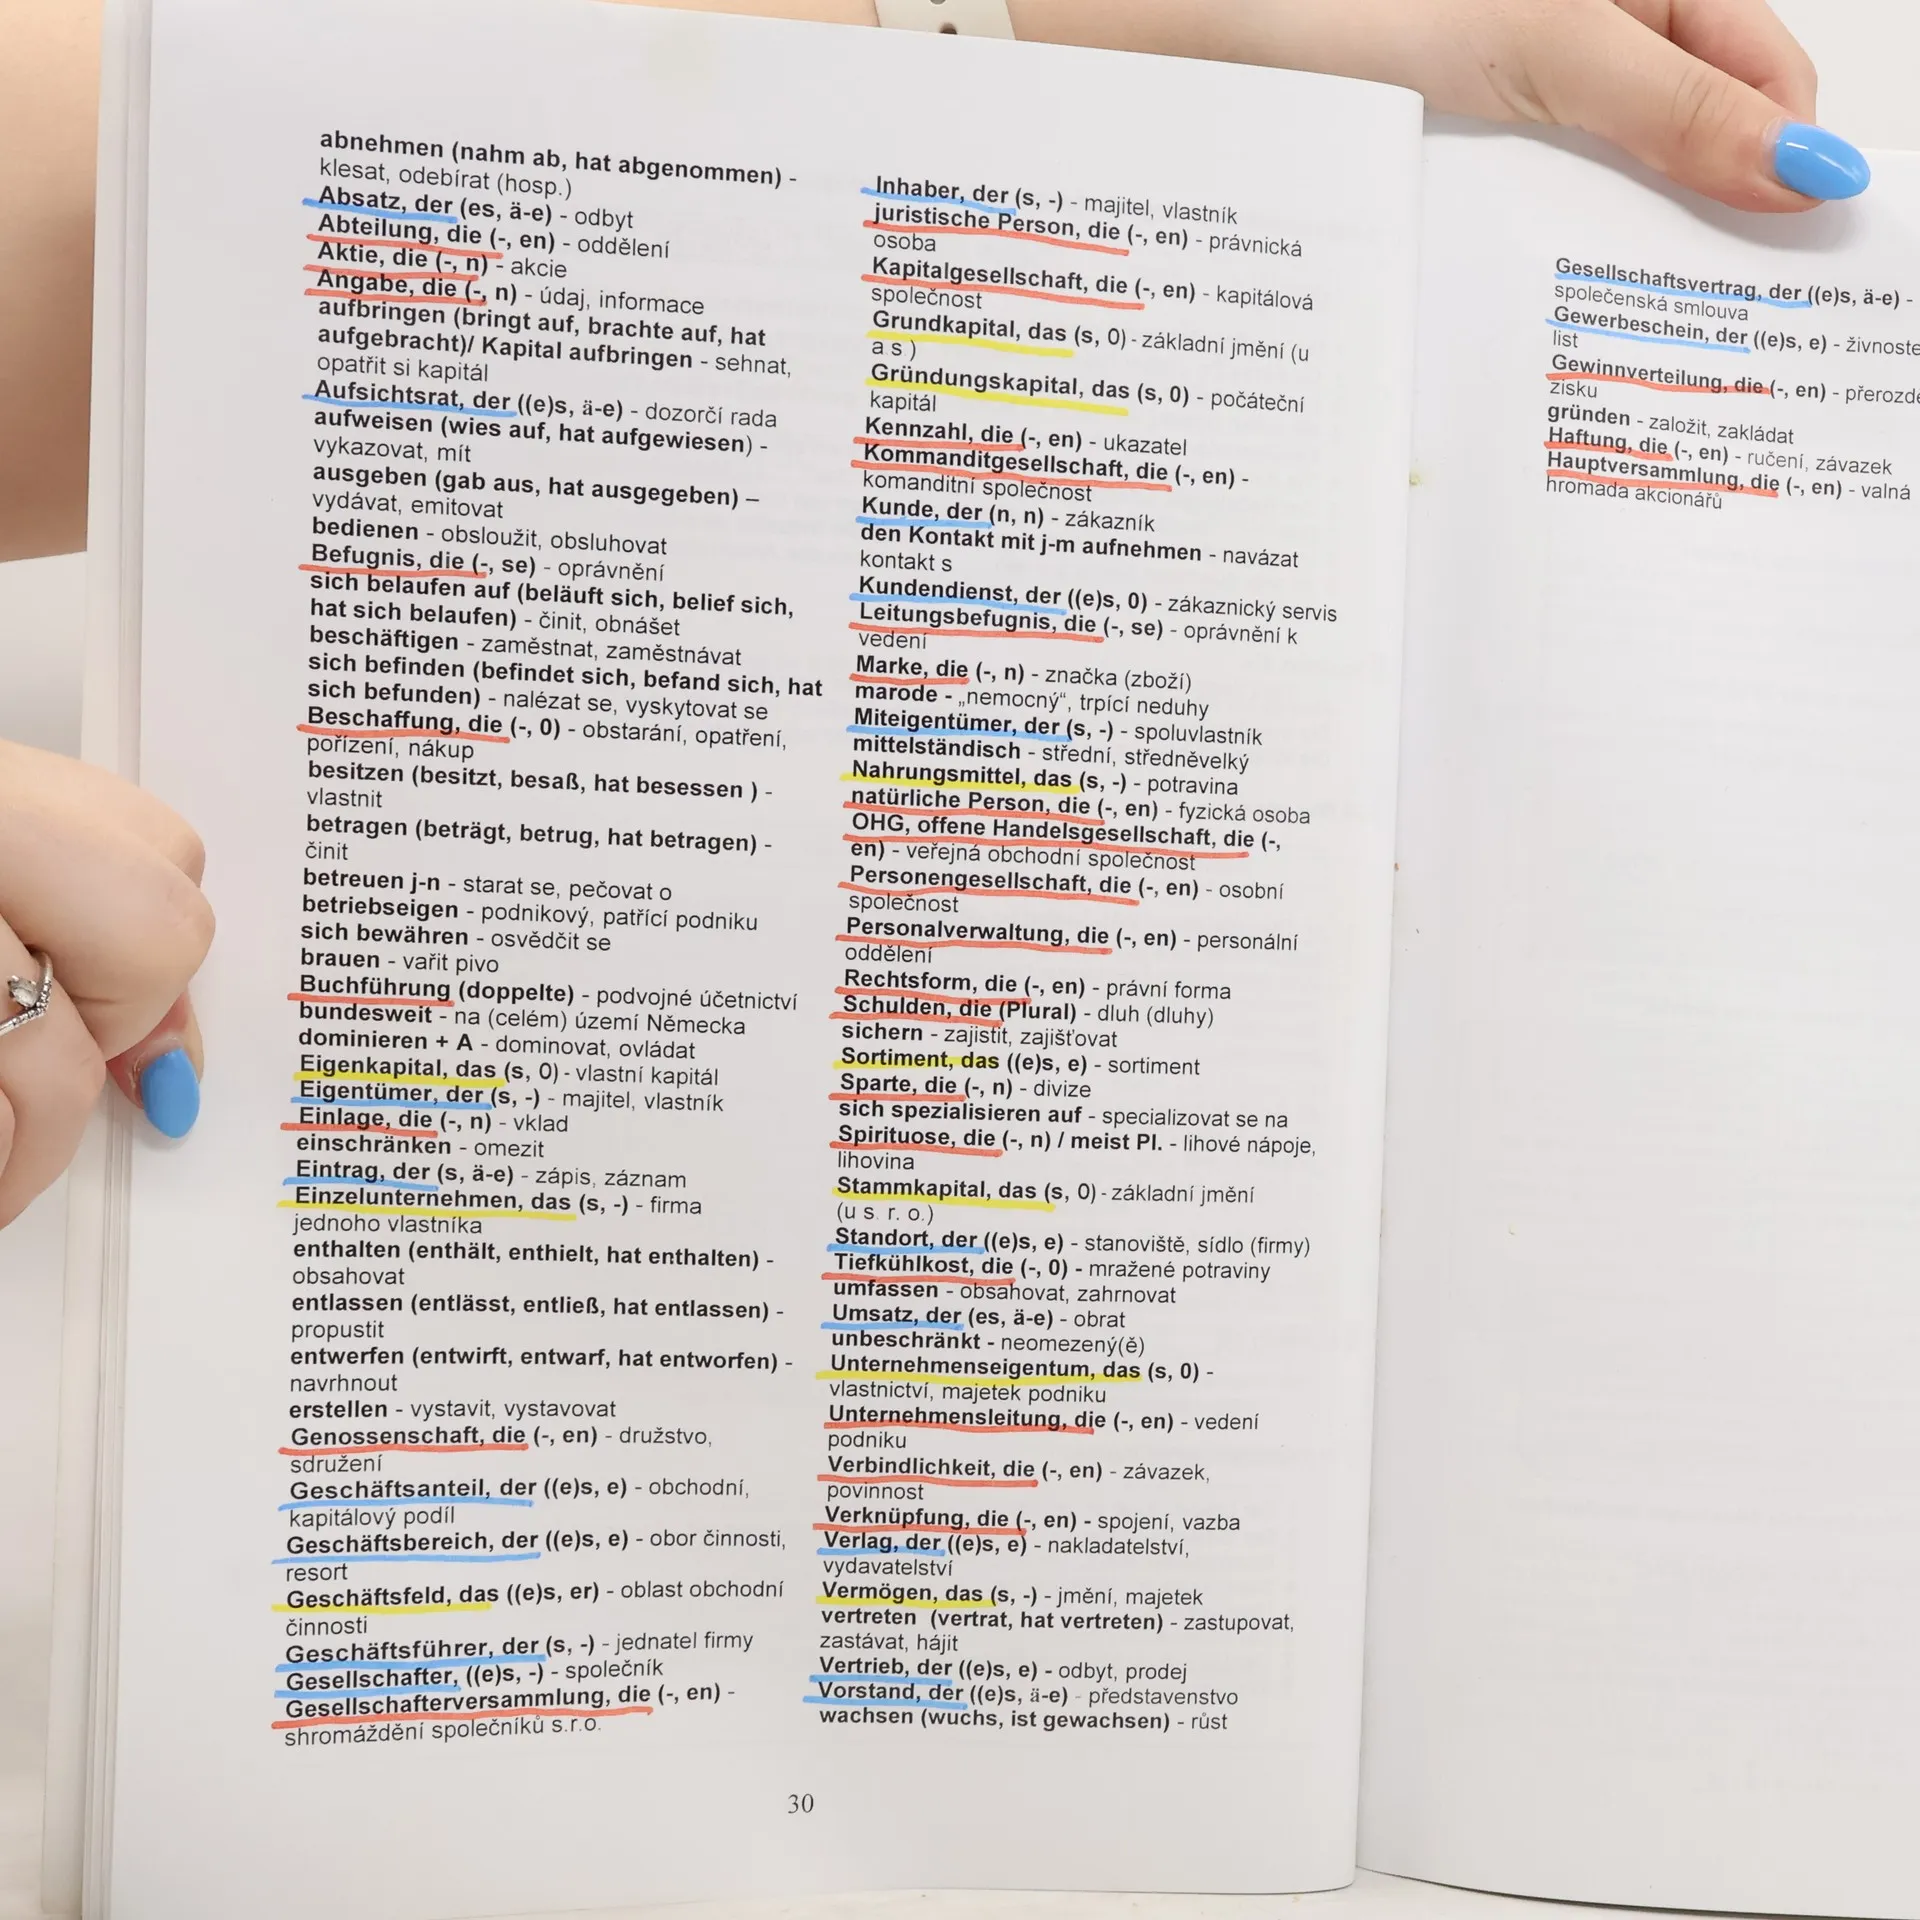 abnehmen (nahm ab, hat abgenommen) -
klesat, odebírat (hosp.)
Absatz, der (es, ä-e) - odbyt
Abteilung, die (-, en) - oddělení
Aktie, die (-, n) - akcie
Angabe, die (-, n) - údaj, informace
aufbringen (bringt auf, brachte auf, hat
aufgebracht)/ Kapital aufbringen - sehnat,
opatřit si kapitál
Aufsichtsrat, der ((e)s, ä-e) - dozorčí rada
aufweisen (wies auf, hat aufgewiesen) -
vykazovat, mít
ausgeben (gab aus, hat ausgegeben) –
vydávat, emitovat
bedienen - obsloužit, obsluhovat
Befugnis, die (-, se) - oprávnění
sich belaufen auf (beläuft sich, belief sich,
hat sich belaufen) - činit, obnášet
beschäftigen - zaměstnat, zaměstnávat
sich befinden (befindet sich, befand sich, hat
sich befunden) - nalézat se, vyskytovat se
Beschaffung, die (-, 0) - obstarání, opatření,
pořízení, nákup
besitzen (besitzt, besaß, hat besessen ) -
vlastnit
betragen (beträgt, betrug, hat betragen) -
činit
betreuen j-n - starat se, pečovat o
betriebseigen - podnikový, patřící podniku
sich bewähren - osvědčit se
brauen - vařit pivo
Buchführung (doppelte) - podvojné účetnictví
bundesweit - na (celém) území Německa
dominieren + A - dominovat, ovládat
Eigenkapital, das (s, 0) - vlastní kapitál
Eigentümer, der (s, -) - majitel, vlastník
Einlage, die (-, n) - vklad
einschränken - omezit
Eintrag, der (s, ä-e) - zápis, záznam
Einzelunternehmen, das (s, -) - firma
jednoho vlastníka
enthalten (enthält, enthielt, hat enthalten) -
obsahovat
entlassen (entlässt, entließ, hat entlassen) -
propustit
entwerfen (entwirft, entwarf, hat entworfen) -
navrhnout
erstellen - vystavit, vystavovat
Genossenschaft, die (-, en) - družstvo,
sdružení
Geschäftsanteil, der ((e)s, e) - obchodní,
kapitálový podíl
Geschäftsbereich, der ((e)s, e) - obor činnosti,
resort
Geschäftsfeld, das ((e)s, er) - oblast obchodní
činnosti
Geschäftsführer, der (s, -) - jednatel firmy
Gesellschafter, ((e)s, -) - společník
Gesellschafterversammlung, die (-, en) -
shromáždění společníků s.r.o.
Inhaber, der (s, -) - majitel, vlastník
juristische Person, die (-, en) - právnická
osoba
Kapitalgesellschaft, die (-, en) - kapitálová
společnost
Grundkapital, das (s, 0) - základní jmění (u
a s )
Gründungskapital, das (s, 0) - počáteční
kapitál
Kennzahl, die (-, en) - ukazatel
Kommanditgesellschaft, die (-, en) -
komanditní společnost
Kunde, der (n, n) - zákazník
den Kontakt mit j-m aufnehmen - navázat
kontakt s
Kundendienst, der ((e)s, 0) - zákaznický servis
Leitungsbefugnis, die (-, se) - oprávnění k
vedení
Marke, die (-, n) - značka (zboží)
marode - „nemocný“, trpící neduhy
Miteigentümer, der (s, -) - spoluvlastník
mittelständisch - střední, středněvelký
Nahrungsmittel, das (s, -) - potravina
natürliche Person, die (-, en) - fyzická osoba
OHG, offene Handelsgesellschaft, die (-,
en) - veřejná obchodní společnost
Personengesellschaft, die (-, en) - osobní
společnost
Personalverwaltung, die (-, en) - personální
oddělení
Rechtsform, die (-, en) - právní forma
Schulden, die (Plural) - dluh (dluhy)
sichern - zajistit, zajišťovat
Sortiment, das ((e)s, e) - sortiment
Sparte, die (-, n) - divize
sich spezialisieren auf - specializovat se na
Spirituose, die (-, n) / meist Pl. - lihové nápoje,
lihovina
Stammkapital, das (s, 0) - základní jmění
(u s. r. o.)
Standort, der ((e)s, e) - stanoviště, sídlo (firmy)
Tiefkühlkost, die (-, 0) - mražené potraviny
umfassen - obsahovat, zahrnovat
Umsatz, der (es, ä-e) - obrat
unbeschränkt - neomezený(ě)
Unternehmenseigentum, das (s, 0) -
vlastnictví, majetek podniku
Unternehmensleitung, die (-, en) - vedení
podniku
Verbindlichkeit, die (-, en) - závazek,
povinnost
Verknüpfung, die (-, en) - spojení, vazba
Verlag, der ((e)s, e) - nakladatelství,
vydavatelství
Vermögen, das (s, -) - jmění, majetek
vertreten (vertrat, hat vertreten) - zastupovat,
zastávat, hájit
Vertrieb, der ((e)s, e) - odbyt, prodej
Vorstand, der ((e)s, ä-e) - představenstvo
wachsen (wuchs, ist gewachsen) - růst
30
Gesellschaftsvertrag, der ((e)s, ä-e) -
společenská smlouva
Gewerbeschein, der ((e)s, e) -
list
Gewinnverteilung, die (-, en) -
zisku
gründen - založit, zakládat
Haftung, die (-, en) - ručení, závazek
Hauptversammlung, die (-, en) - valná
hromada akcionářů